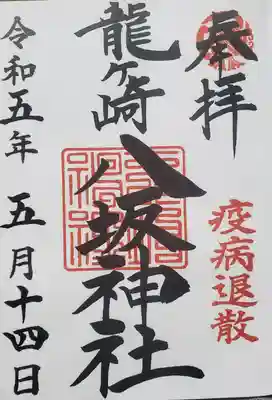 奉拝
疫病退散
龍ヶ崎
八坂神社
令和五年 五月十四日